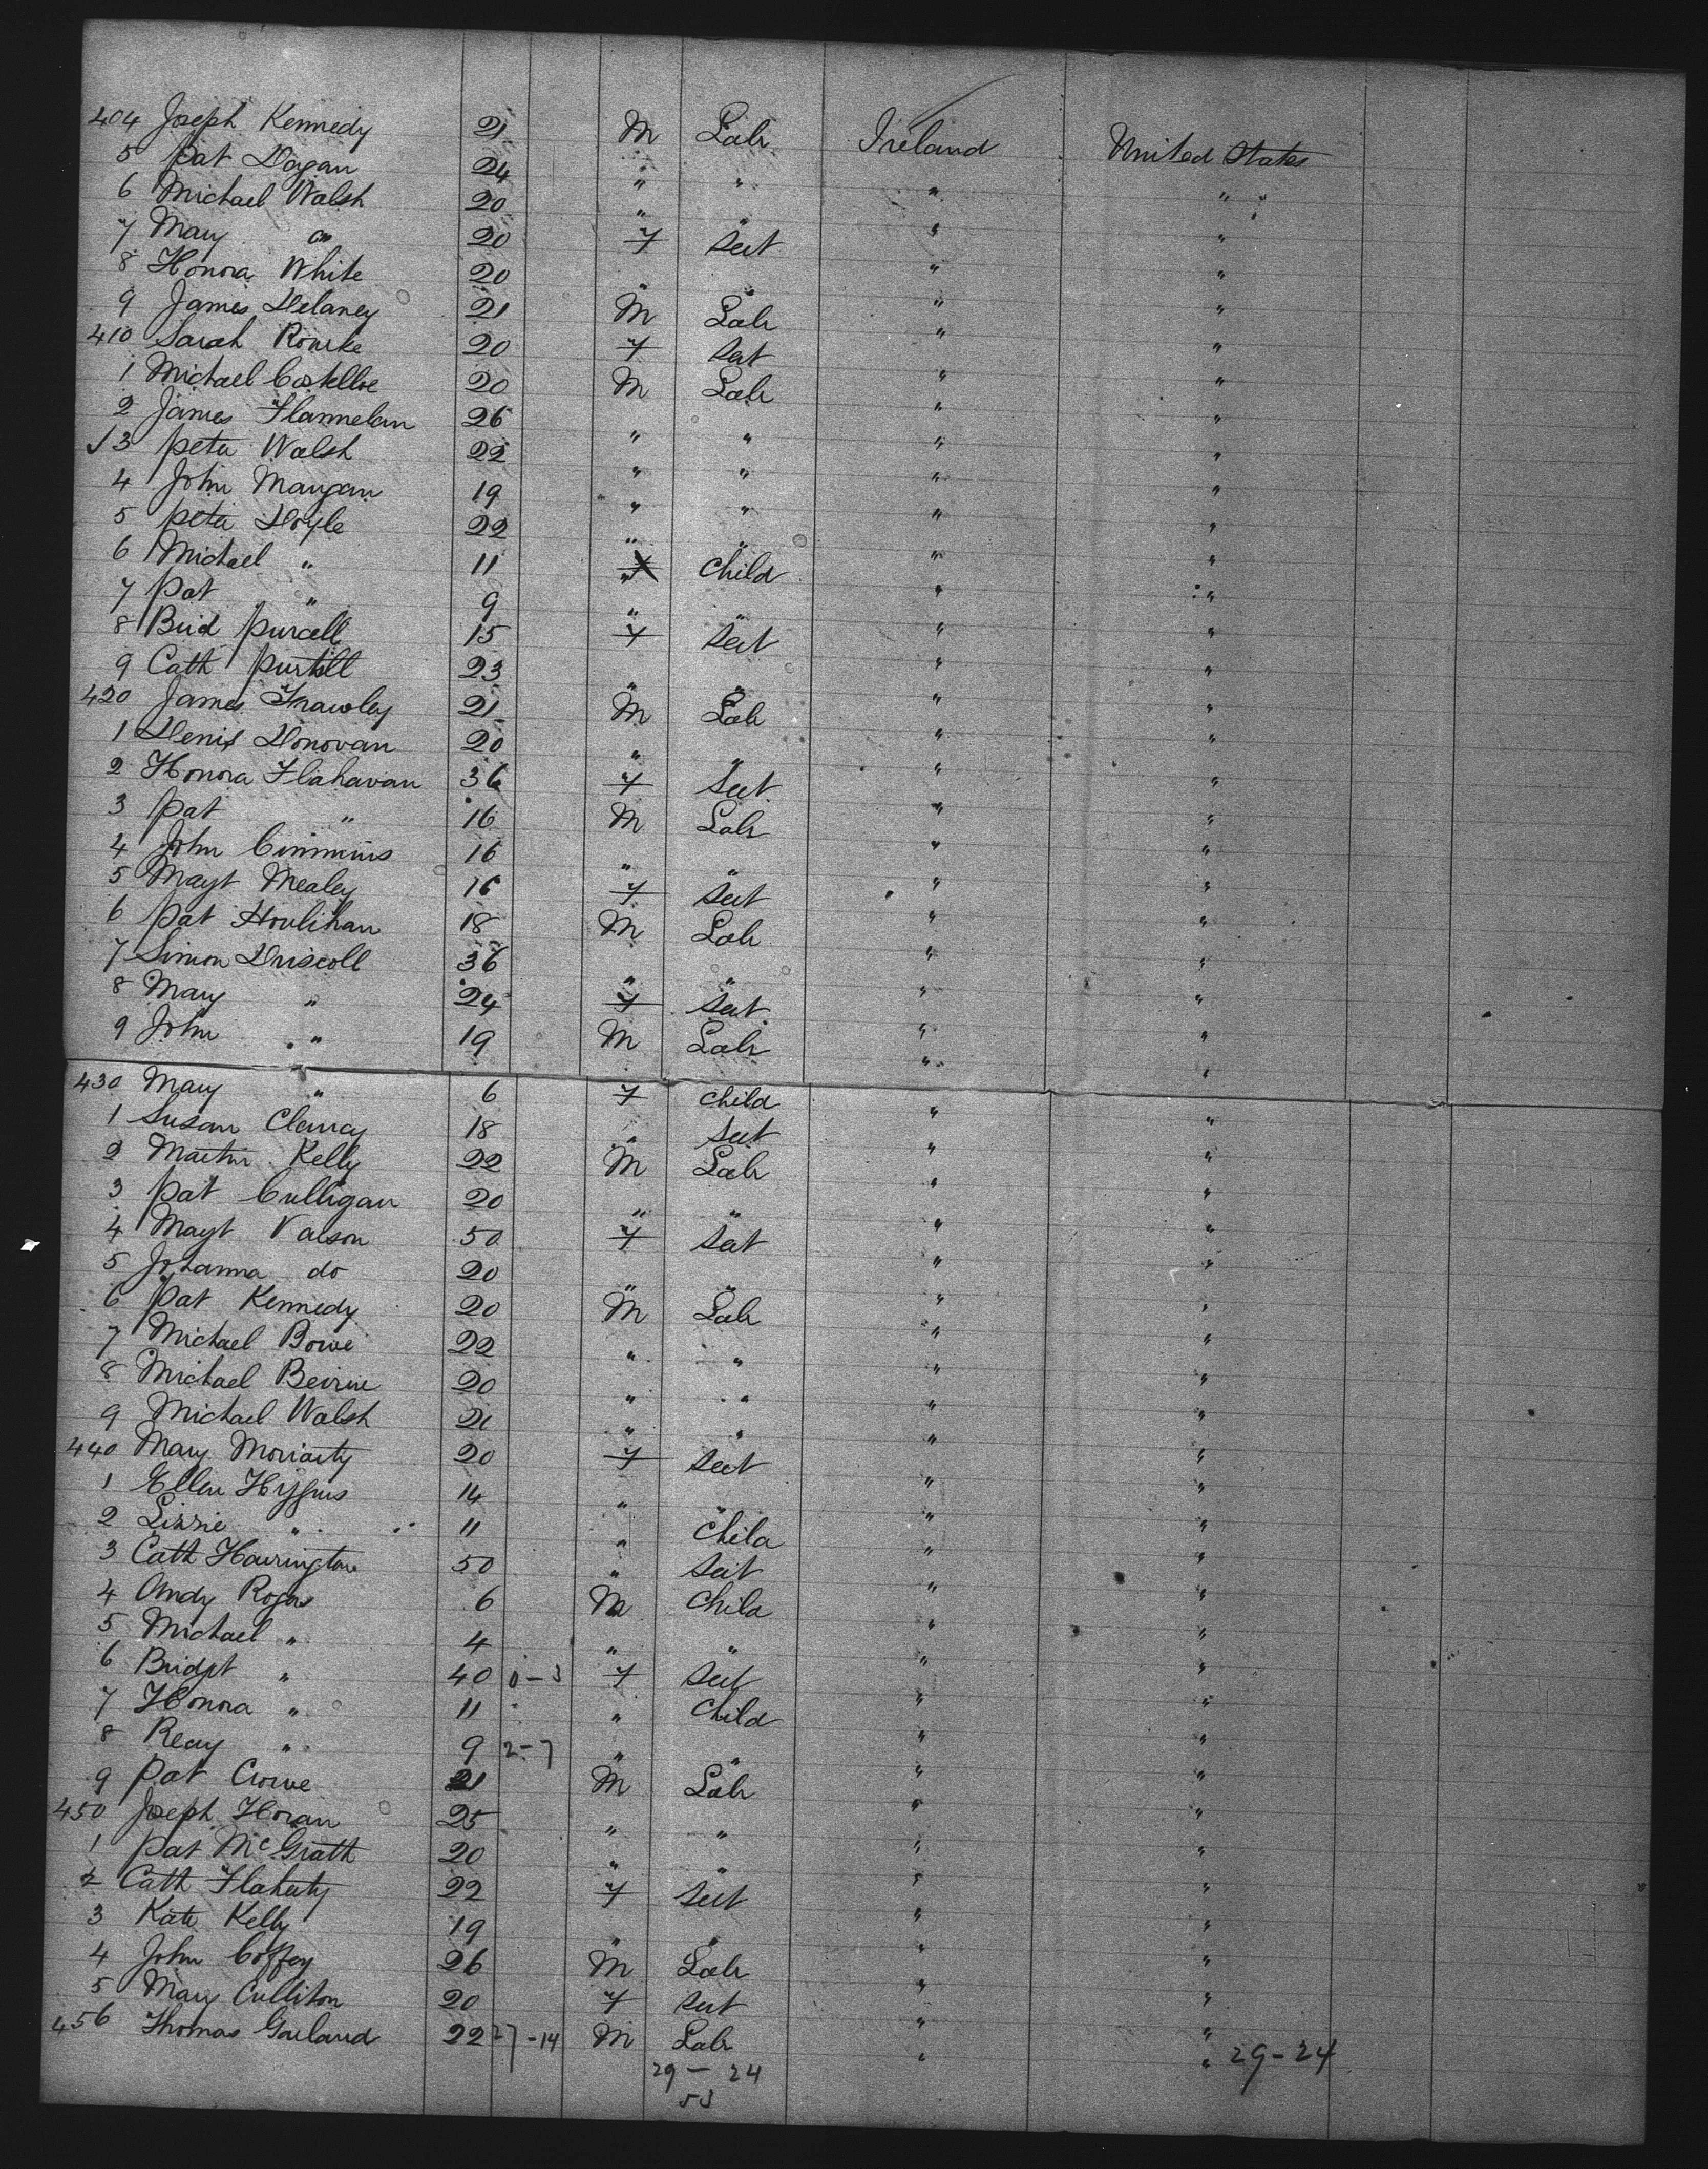 404 Joseph Kennedy 21 M Lab Ireland United States
5 Pat Dogan 24 " " " "
6 Michael Walsh 20 " " " "
7 Mary " 20 F Sert " "
8 Honora White 20 " " " "
9 James Delaney 21 M Lab " "
410 Sarah Rourke 20 F Sert " "
1 Michael Costelloe 20 M Lab " "
2 James Flannelan 26 " " " "
✓3 Peter Walsh 22 " " " "
4 John Mangan 19 " " " "
5 Peter Doyle 22 " " " "
6 Michael " 11 " Child " "
7 Pat " 9 " " "
8 Brid Purcell 15 F Sert " "
9 Cath Purtill 23 " " " "
420 James Frawley 21 M Lab " "
1 Denis Donovan 20 " " " "
2 Honora Flahavan 36 F Sert " "
3 Pat " 16 M Lab " "
4 John Cimmins 16 " " " "
5 Mayt Mealey 16 F Sert " "
6 Pat Houlihan 18 M Lab " "
7 Simon Driscoll 36 " " " "
8 Mary " 24 F Sert " "
9 John " 19 M Lab " "
430 Mary " 6 F Child " "
1 Susan Clancy 18 " Sert " "
2 Martin Kelly 22 M Lab " "
3 Pat Culligan 20 " " " "
4 Mayt Valson 50 F Sert " "
5 Johanna do 20 " " " "
6 Pat Kennedy 20 M Lab " "
7 Michael Bowe 22 " " " "
8 Michael Beirne 20 " " " "
9 Michael Walsh 21 " " " "
440 Mary Moriarty 20 F Sert " "
1 Ellen Higgins 14 " " " "
2 Lizzie " 11 " Child " "
3 Cath Harrington 50 " Sert " "
4 Andy Rogers 6 M Child " "
5 Michael " 4 " " " "
6 Bridgt " 40 0-3 F Sert " "
7 Honora " 11 " Child " "
8 " 9 2-7 " " " "
9 Pat Crowe 21 M Lab " "
450 Joseph Horan 25 " " " "
1 Pat McGrath 20 " " " "
2 Cath Flaherty 22 F Sert " "
3 Kate Kelly 19 " " " "
4 John Coffey 26 M Lab " "
5 Mary Culliton 20 F Sert " "
456 Thomas Garland 22 27-14 M Lab " "
29 - 24 " " 29-24
53